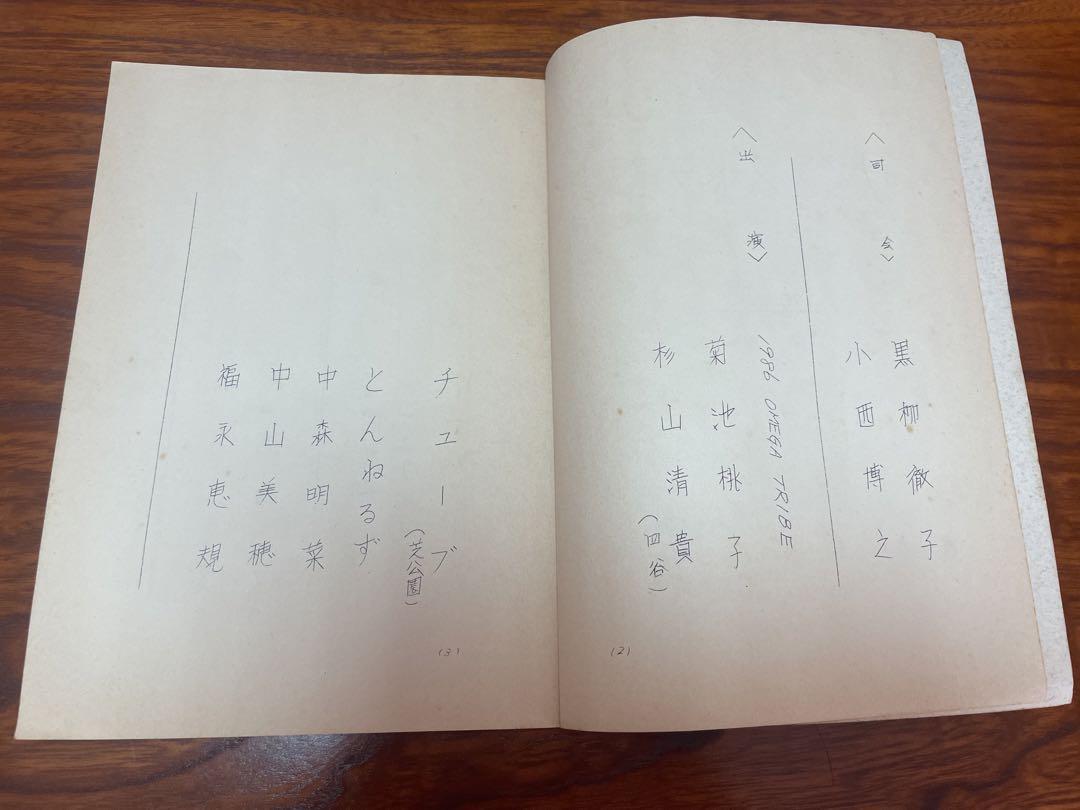 〈司会〉
黒柳徹子
小西博之
〈出演〉
1986 OMEGA TRIBE
菊池桃子
杉山清貴
(四谷)
(2)
チューブ
(芝公園)
とんねるず
中森明菜
中山美穂
福永恵規
(3)